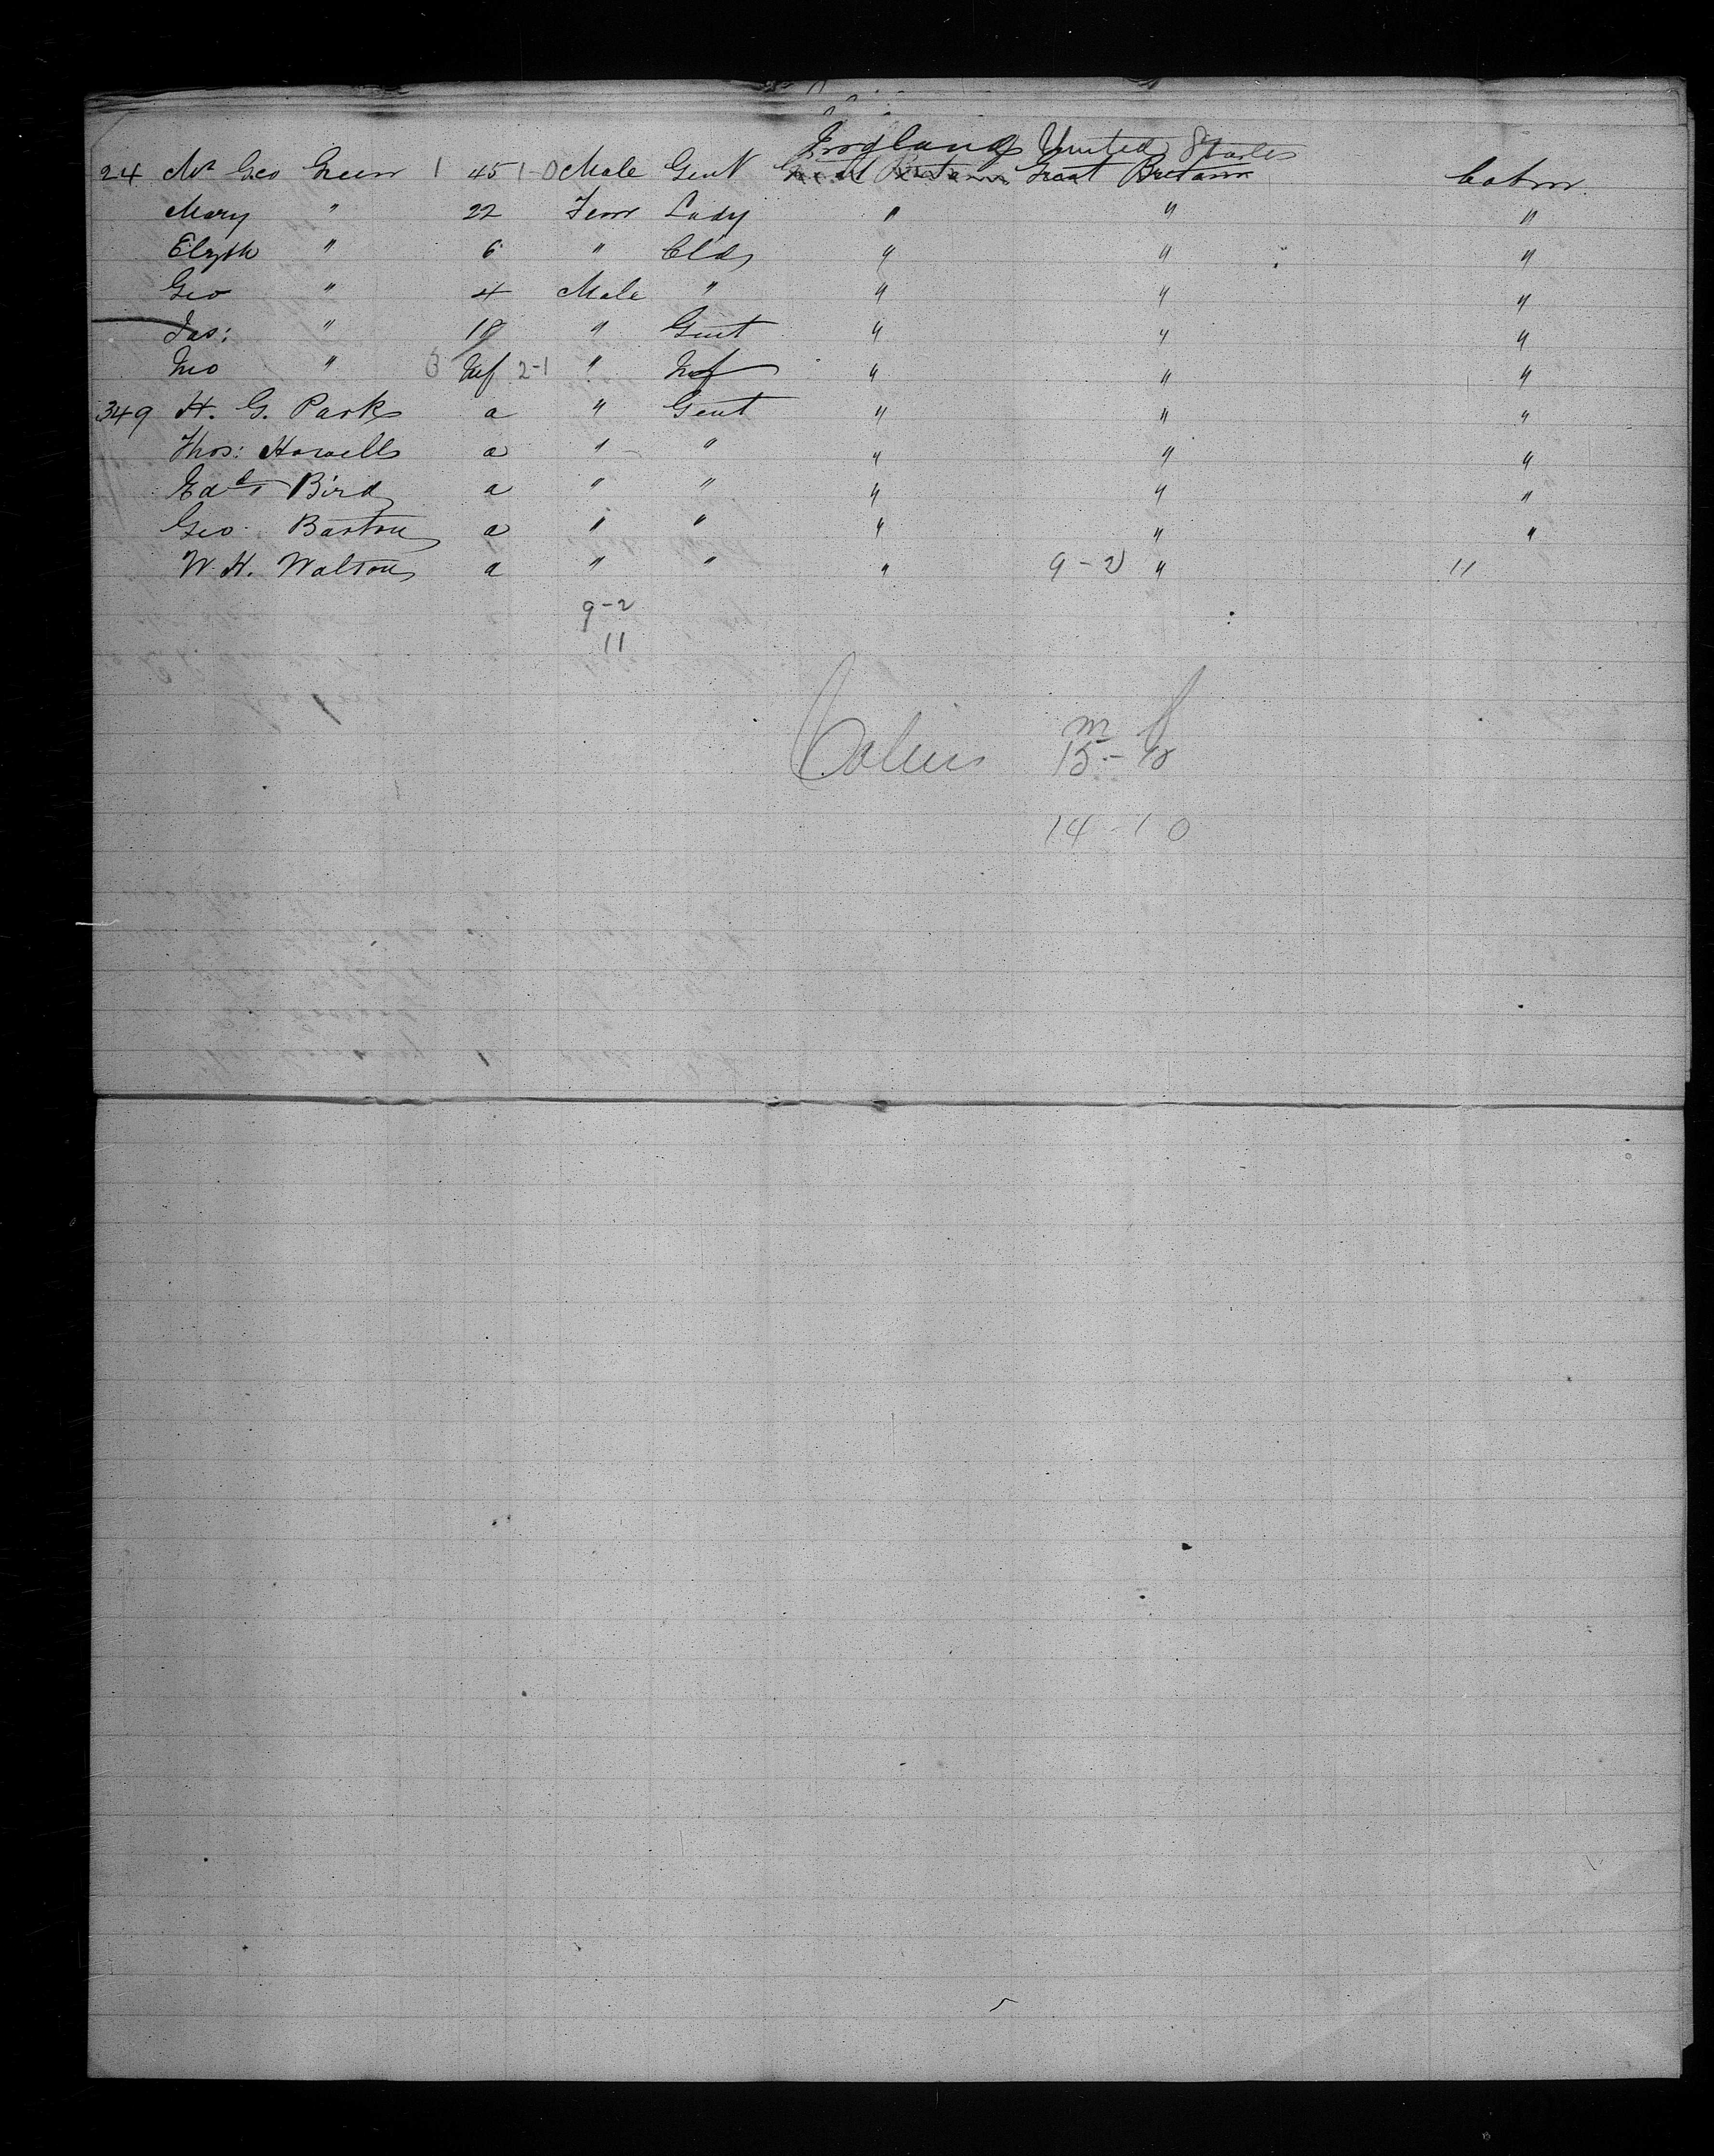 England United States
24 Mr Geo Green 1 45 1-0 Male Gent Great Britain Great Britain Cabin
Mary " 22 Fem Lady " " "
Elizth " 6 " Chld " " "
Geo " 4 Male " " " "
Jas: " 18 " Gent " " "
Jno " 3 Inf 2-1 " Inf " " "
349 H. G. Parks a " Gent " " "
Thos: Howells a " " " " "
Edd Bird a " " " " "
Geo Barton a " " " " "
W. H. Walton a " " " 9-2 " 11
9-2
11
m f
Cabin 15-
14-10